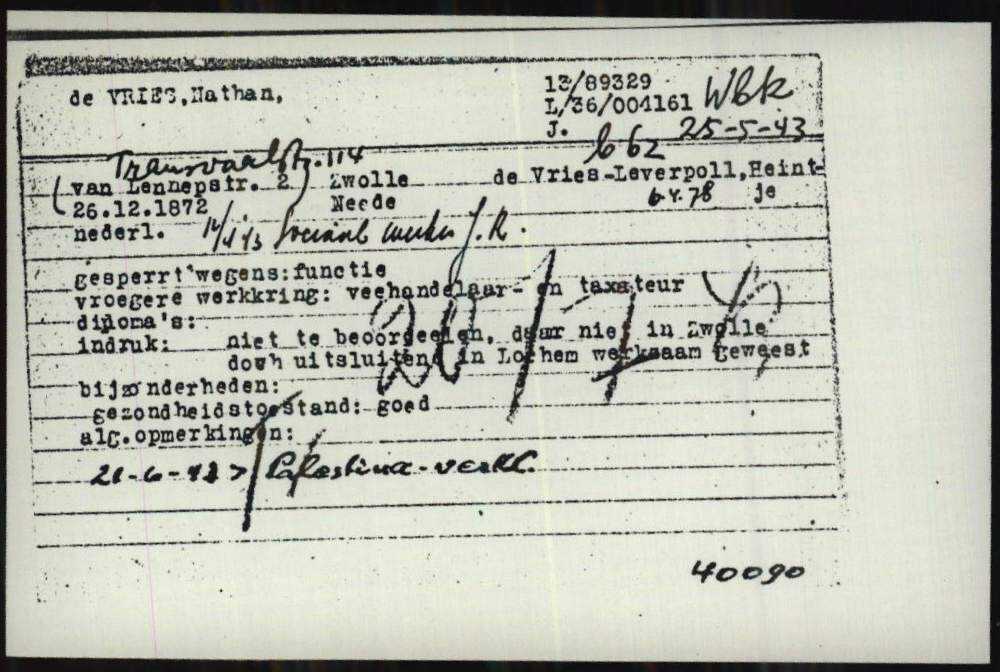 de VRIES, Nathan,
13/89329
L/36/001161 Wbk
J. 25-5-43
Transvaalstr. 114 b 62
(van Lennepstr. 2) Zwolle de Vries-Leverpoll, Heint-
26.12.1872 Neede 6.4.78 je
nederl. J.R.
gesperrt wegens: functie
vroegere werkkring: veehandelaar- en taxateur
diploma's:
indruk: niet te beoordeelen, daar niet in Zwolle
doch uitsluitend in Lochem werkzaam geweest
bijzonderheden:
gezondheidstoestand: goed
alg. opmerkingen:
21-6-43 > Palestina-verkl.
40090